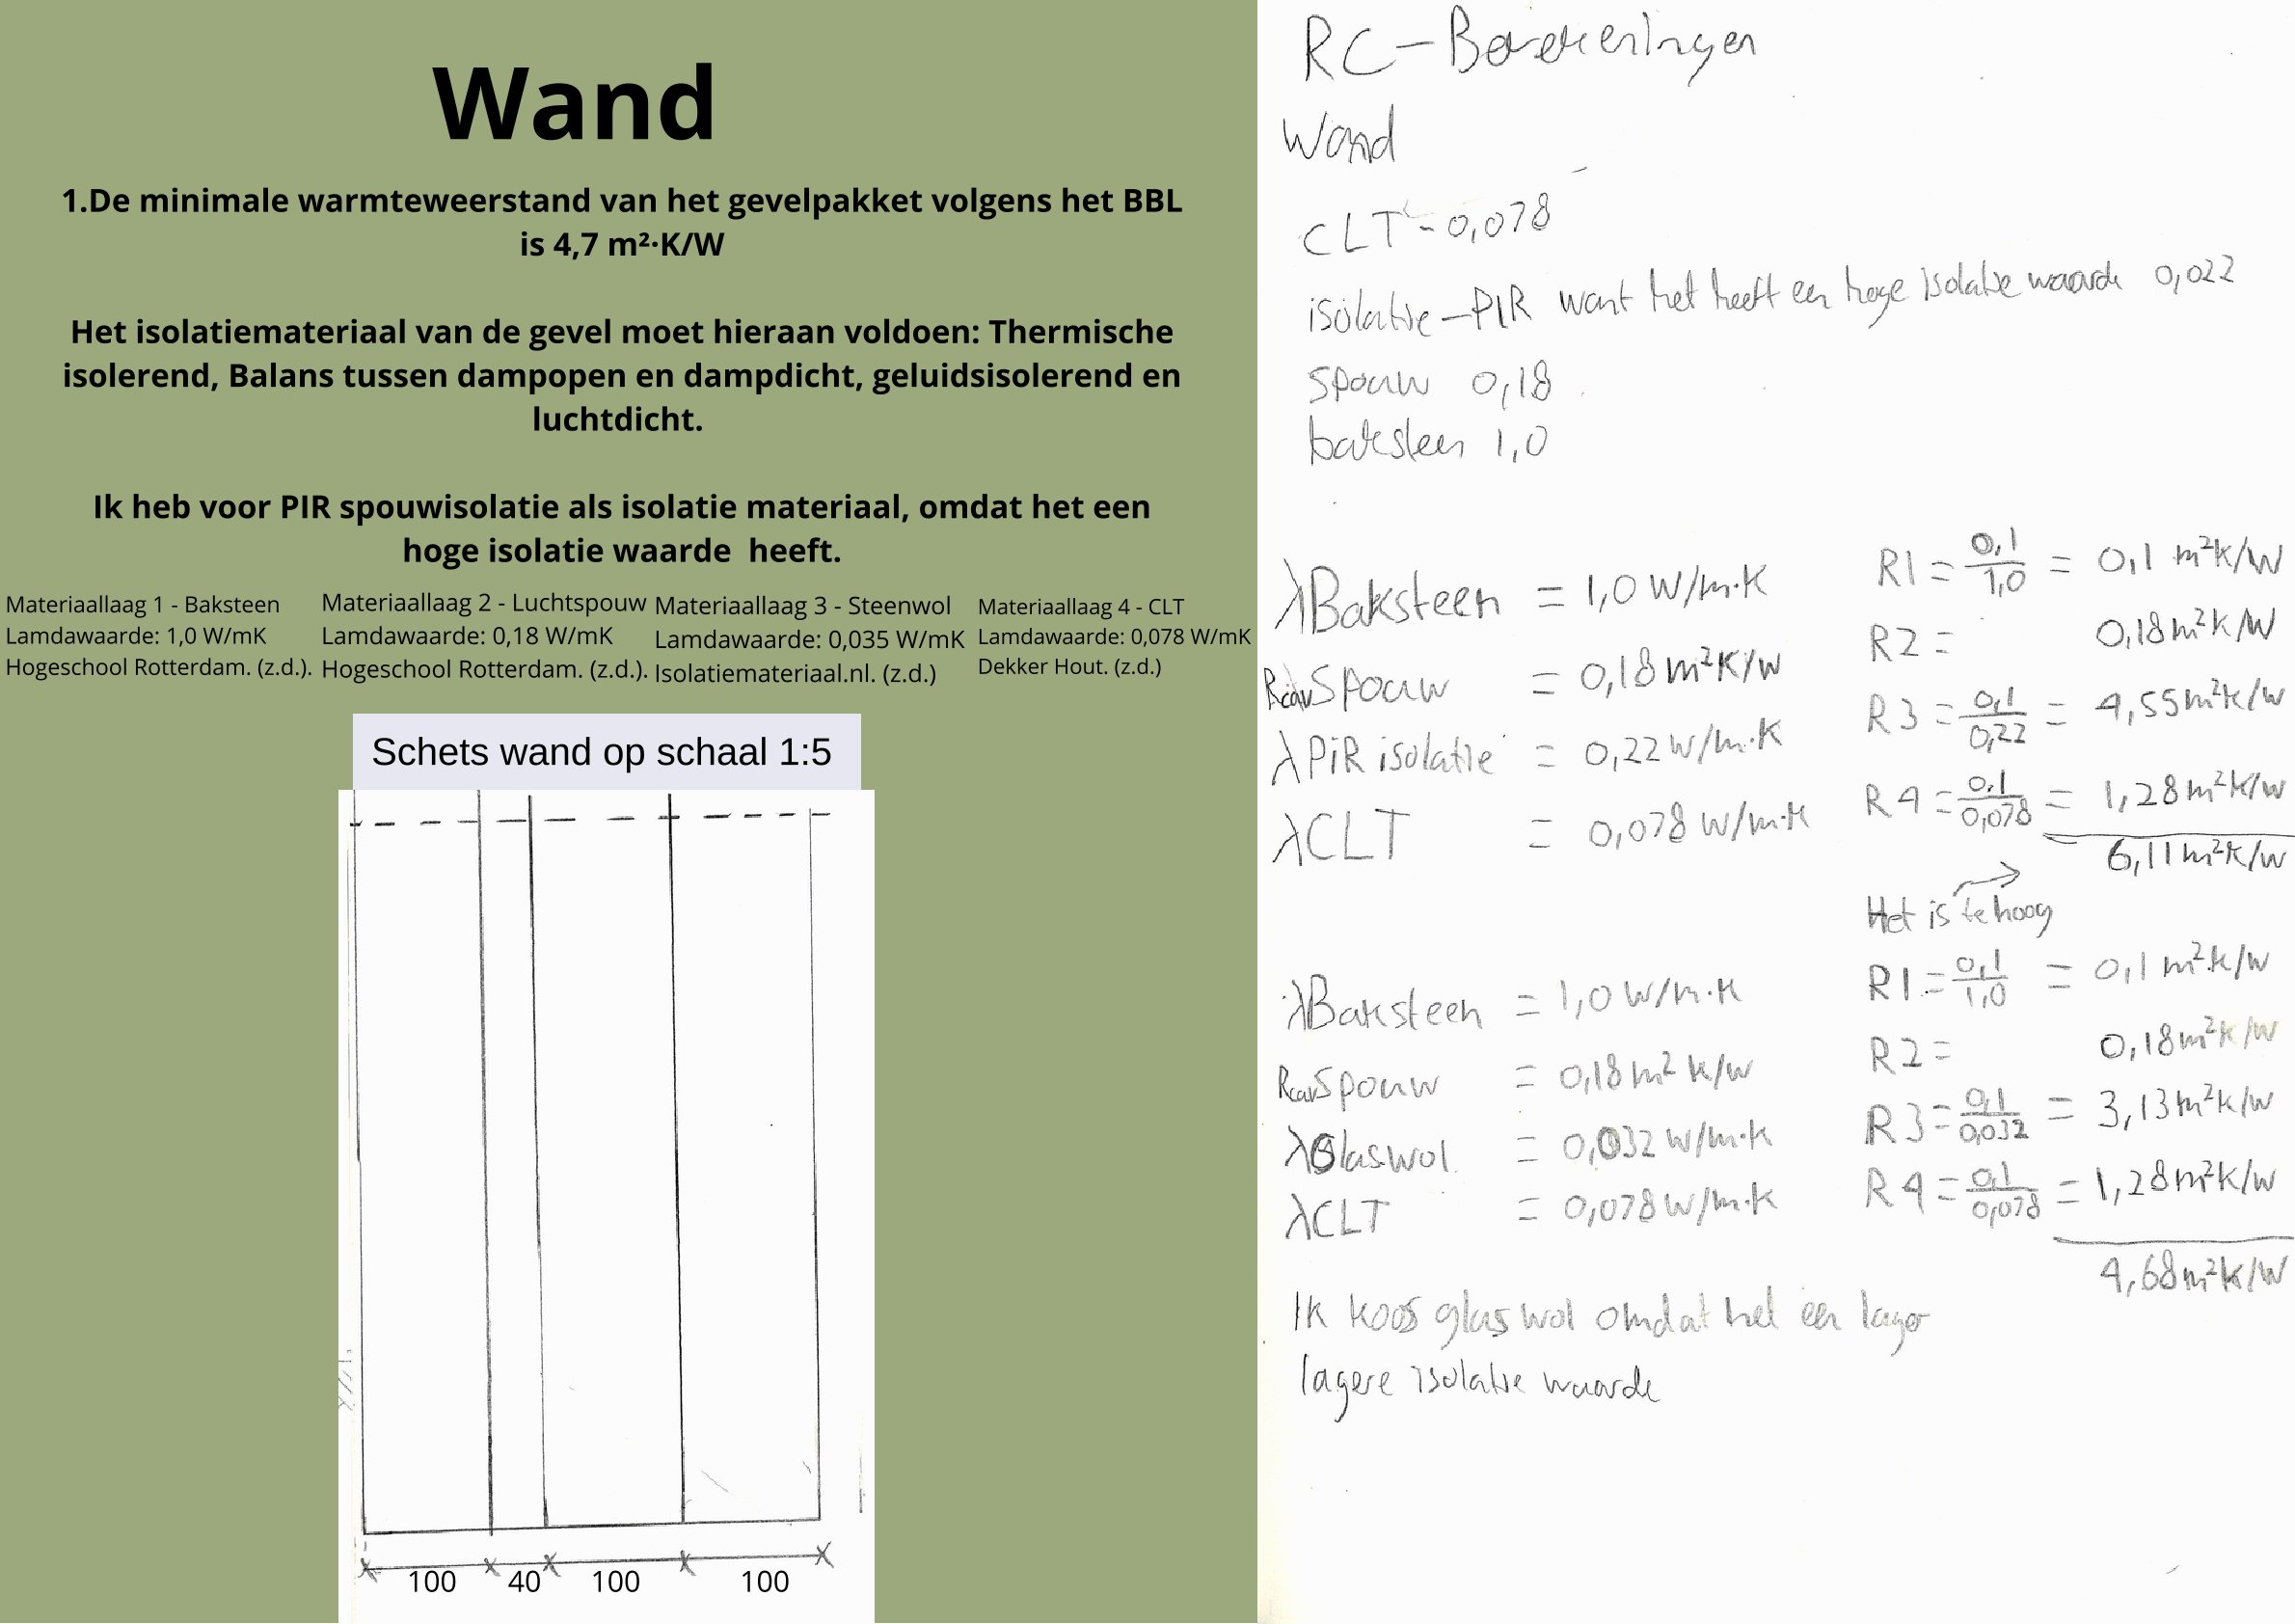 Wand
1.De minimale warmteweerstand van het gevelpakket volgens het BBL
is 4,7 m²·K/W
Het isolatiemateriaal van de gevel moet hieraan voldoen: Thermische
isolerend, Balans tussen dampopen en dampdicht, geluidsisolerend en
luchtdicht.
Ik heb voor PIR spouwisolatie als isolatie materiaal, omdat het een
hoge isolatie waarde heeft.
Materiaallaag 1 - Baksteen
Lamdawaarde: 1,0 W/mK
Hogeschool Rotterdam. (z.d.).
Materiaallaag 2 - Luchtspouw
Lamdawaarde: 0,18 W/mK
Hogeschool Rotterdam. (z.d.).
Materiaallaag 3 - Steenwol
Lamdawaarde: 0,035 W/mK
Isolatiemateriaal.nl. (z.d.)
Materiaallaag 4 - CLT
Lamdawaarde: 0,078 W/mK
Dekker Hout. (z.d.)
Schets wand op schaal 1:5
100 40 100 100
RC-Berekeningen
Wand
CLT - 0,078
isolatie - PIR want het heeft een hoge isolatie waarde 0,022
spouw 0,18
baksteen 1,0
λBaksteen = 1,0 W/m·K
Rcav Spouw = 0,18 m²K/W
λPiR isolatie = 0,22 W/m·K
λCLT = 0,078 W/m·K
R1 = 0,1/1,0 = 0,1 m²K/W
R2 = 0,18 m²K/W
R3 = 0,1/0,22 = 4,55 m²K/W
R4 = 0,1/0,078 = 1,28 m²K/W
6,11 m²K/W
Het is te hoog
λBaksteen = 1,0 W/m·K
Rcav Spouw = 0,18 m² K/W
λGlaswol = 0,032 W/m·K
λCLT = 0,078 W/m·K
R1 = 0,1/1,0 = 0,1 m²·K/W
R2 = 0,18 m²K/W
R3 = 0,1/0,032 = 3,13 m²K/W
R4 = 0,1/0,078 = 1,28 m²K/W
4,68 m²K/W
Ik koos glaswol omdat het een lager
lagere isolatie waarde